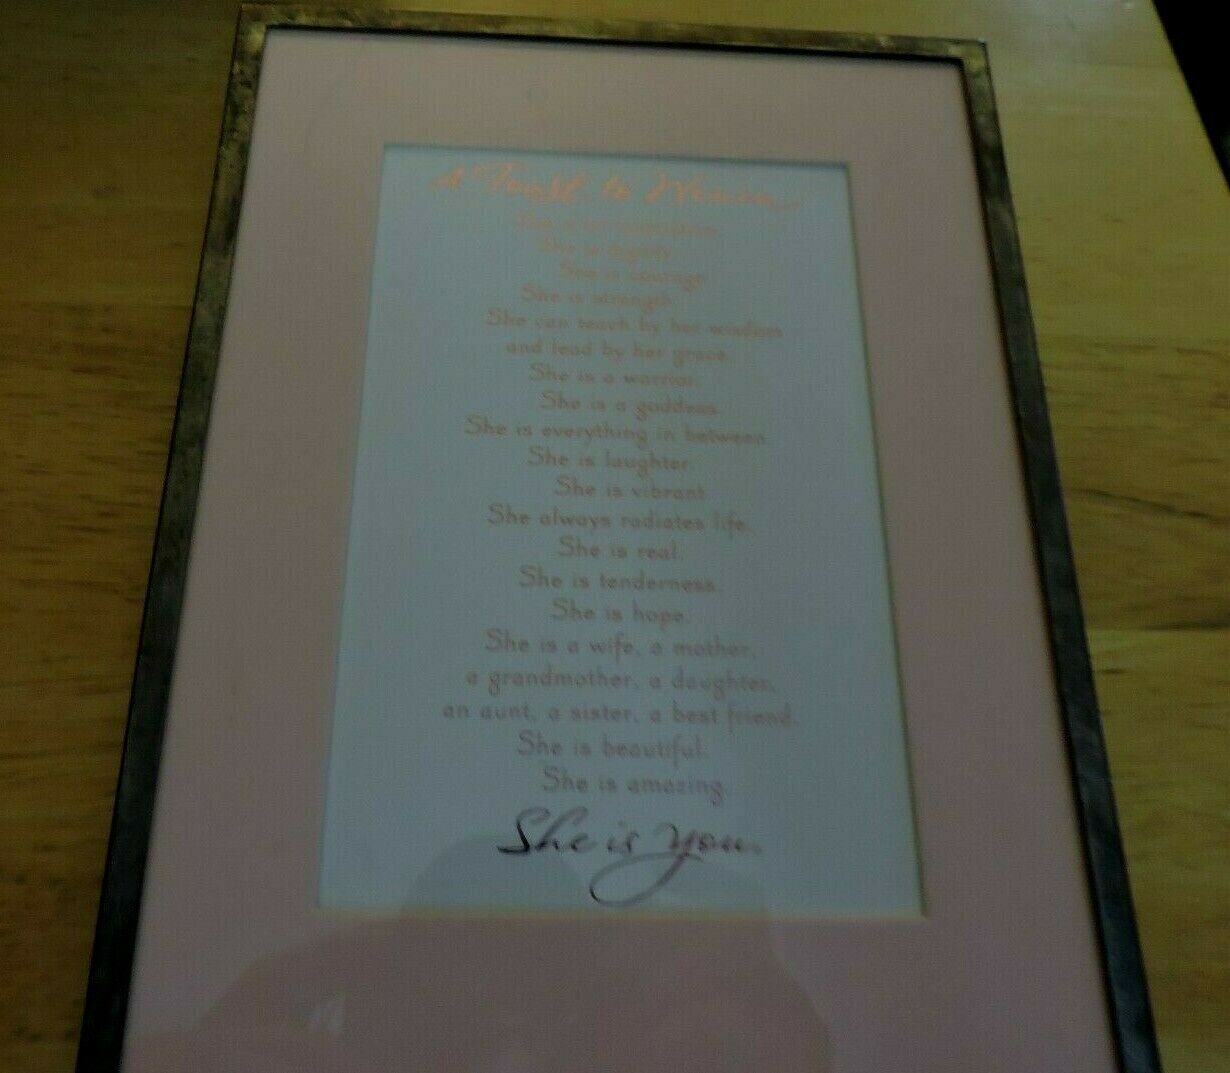 A Toast to Women
She is
She is dignity.
She is courage.
She is strength.
She can teach by her wisdom
and lead by her grace.
She is a warrior.
She is a goddess.
She is everything in between.
She is laughter.
She is vibrant.
She always radiates life.
She is real.
She is tenderness.
She is hope.
She is a wife, a mother,
a grandmother, a daughter,
an aunt, a sister, a best friend.
She is beautiful.
She is amazing.
She is you.